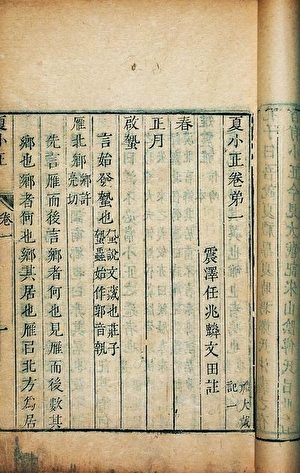 夏小正卷弟一
大戴
記一
震澤任兆麟文田註
春
正月
啟蟄
言始發蟄也 說文蟄藏也莊子
蟄蟲始作郭音執
雁北鄉 鄉許
亮切
先言雁而後言鄉者何也見雁而後數其
鄉也鄉者何也鄉其居也雁㠯北方爲居
夏小正
卷一
一